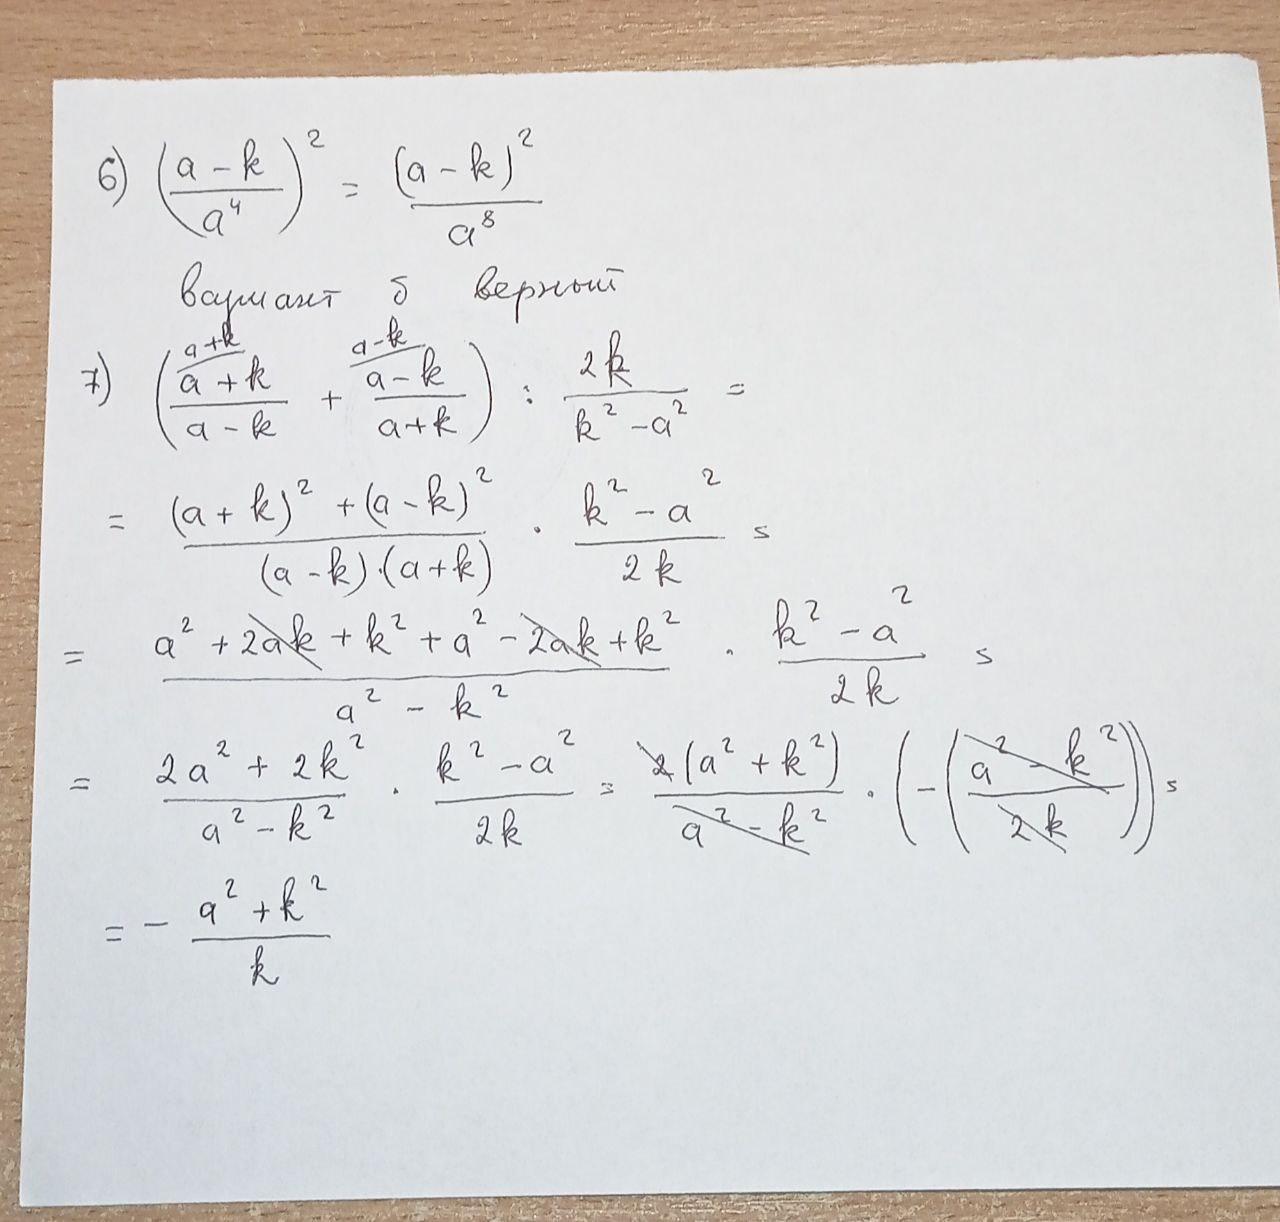 6) ((a - k)/a⁴)² = (a - k)²/a⁸
вариант б верный
7) ((a + k)/(a - k) ^(a+k) + (a - k)/(a + k) ^(a-k)) : 2k/(k² - a²) =
= ((a + k)² + (a - k)²)/((a - k)·(a + k)) · (k² - a²)/(2k) =
= (a² + 2ak + k² + a² - 2ak + k²)/(a² - k²) · (k² - a²)/(2k) =
= (2a² + 2k²)/(a² - k²) · (k² - a²)/(2k) = 2(a² + k²)/(a² - k²) · (-((a² - k²)/(2k))) =
= - (a² + k²)/k